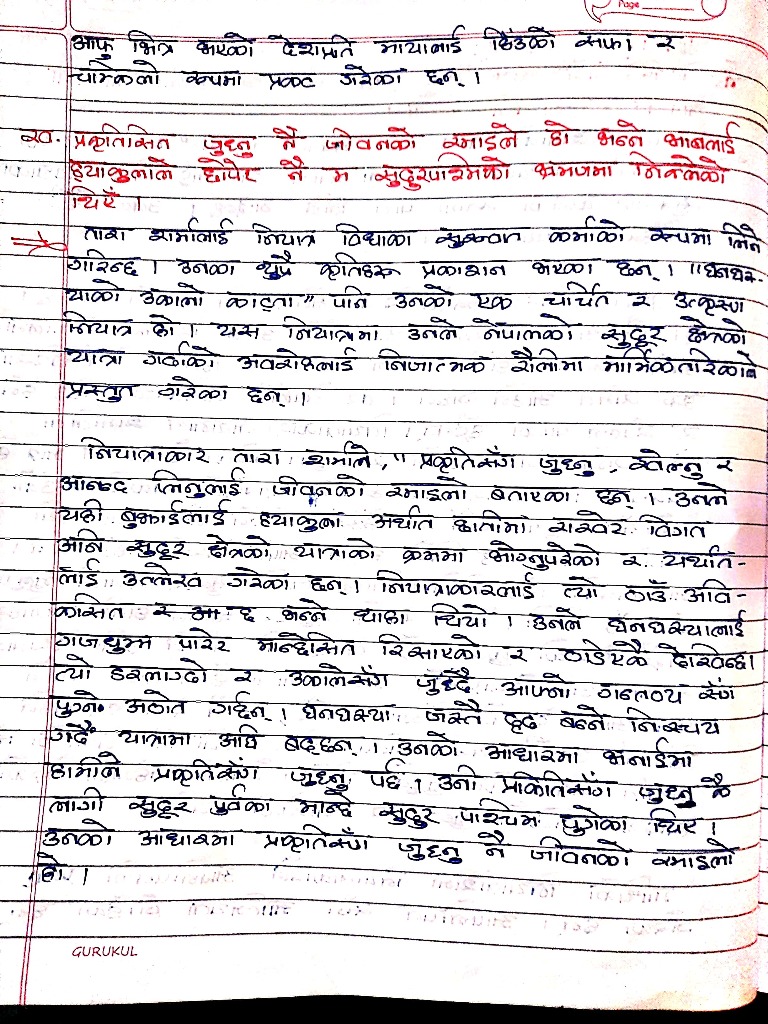 Page
आफु भित्र भएको देशप्रति मायालाई हिउँको सफा र
चम्किलो रूपमा प्रकट गरेका छन् ।
२०. प्रकृतिसित जुध्नु नै जीवनको रमाइलो हो भन्ने भानलाई
ह्याकुलाले छोपेर नै म सुदुरपश्चिमको भ्रमणमा निक्लेको
थिएँ ।
तारा शर्मालाई नियात्रा विधाका सुरुवात कर्माको रूपमा लिने
गरिन्छ । उनका थुप्रै कृतिहरू प्रकाशन भएका छन् । "घनघस्-
याको उकालो काट्दा" पनि उनको एक चर्चित र उत्कृष्ण
नियात्रा हो । यस नियात्रामा उनले नेपालको सुदूर क्षेत्रको
यात्रा गर्दाको अवरोहलाई निजात्मक शैलीमा मार्मिक तरिकाले
प्रस्तुत गरेका छन् ।
नियात्राकार तारा शर्माले, "प्रकृतिसँग जुध्नु, खेल्नु र
आनन्द लिनुलाई जीवनको रमाइलो बताएका छन् । उनले
यही बुझाईलाई ह्याकुला अर्थात छातीमा राखेर विगत
अनि सुदूर क्षेत्रको यात्राको क्रममा भोग्नुपरेको र यर्थात-
लाई उल्लेख गरेका छन् । नियात्राकारलाई त्यो ठाउँ अवि-
कसित छ भन्ने थाहा थियो । उनले घनघस्यालाई
गजधुम्म पारेर मान्छेसित रिसाएको र ठाडिएकै देखिन्छ ।
त्यो डरलाग्दो र उकालोसँग जुध्दै आफ्नो गन्तव्य सँग
पुग्ने अठोत गर्छन् । घनघस्या जस्तै दृढ बन्ने निःस्चय
गर्दै यात्रामा अघि बढ्छन् । उनको आधारमा भनाईमा
हामीले प्रकृतिसँग जुध्नु पर्छ । उनी प्रकितिसँग जुध्नु कै
लागी सुदूर पूर्वका मान्छे सुदुर पश्चिम पुगेका थिए ।
उनको आधारमा प्रकृतिसँग जुध्नु नै जीवनको रमाइलो
हो ।
GURUKUL